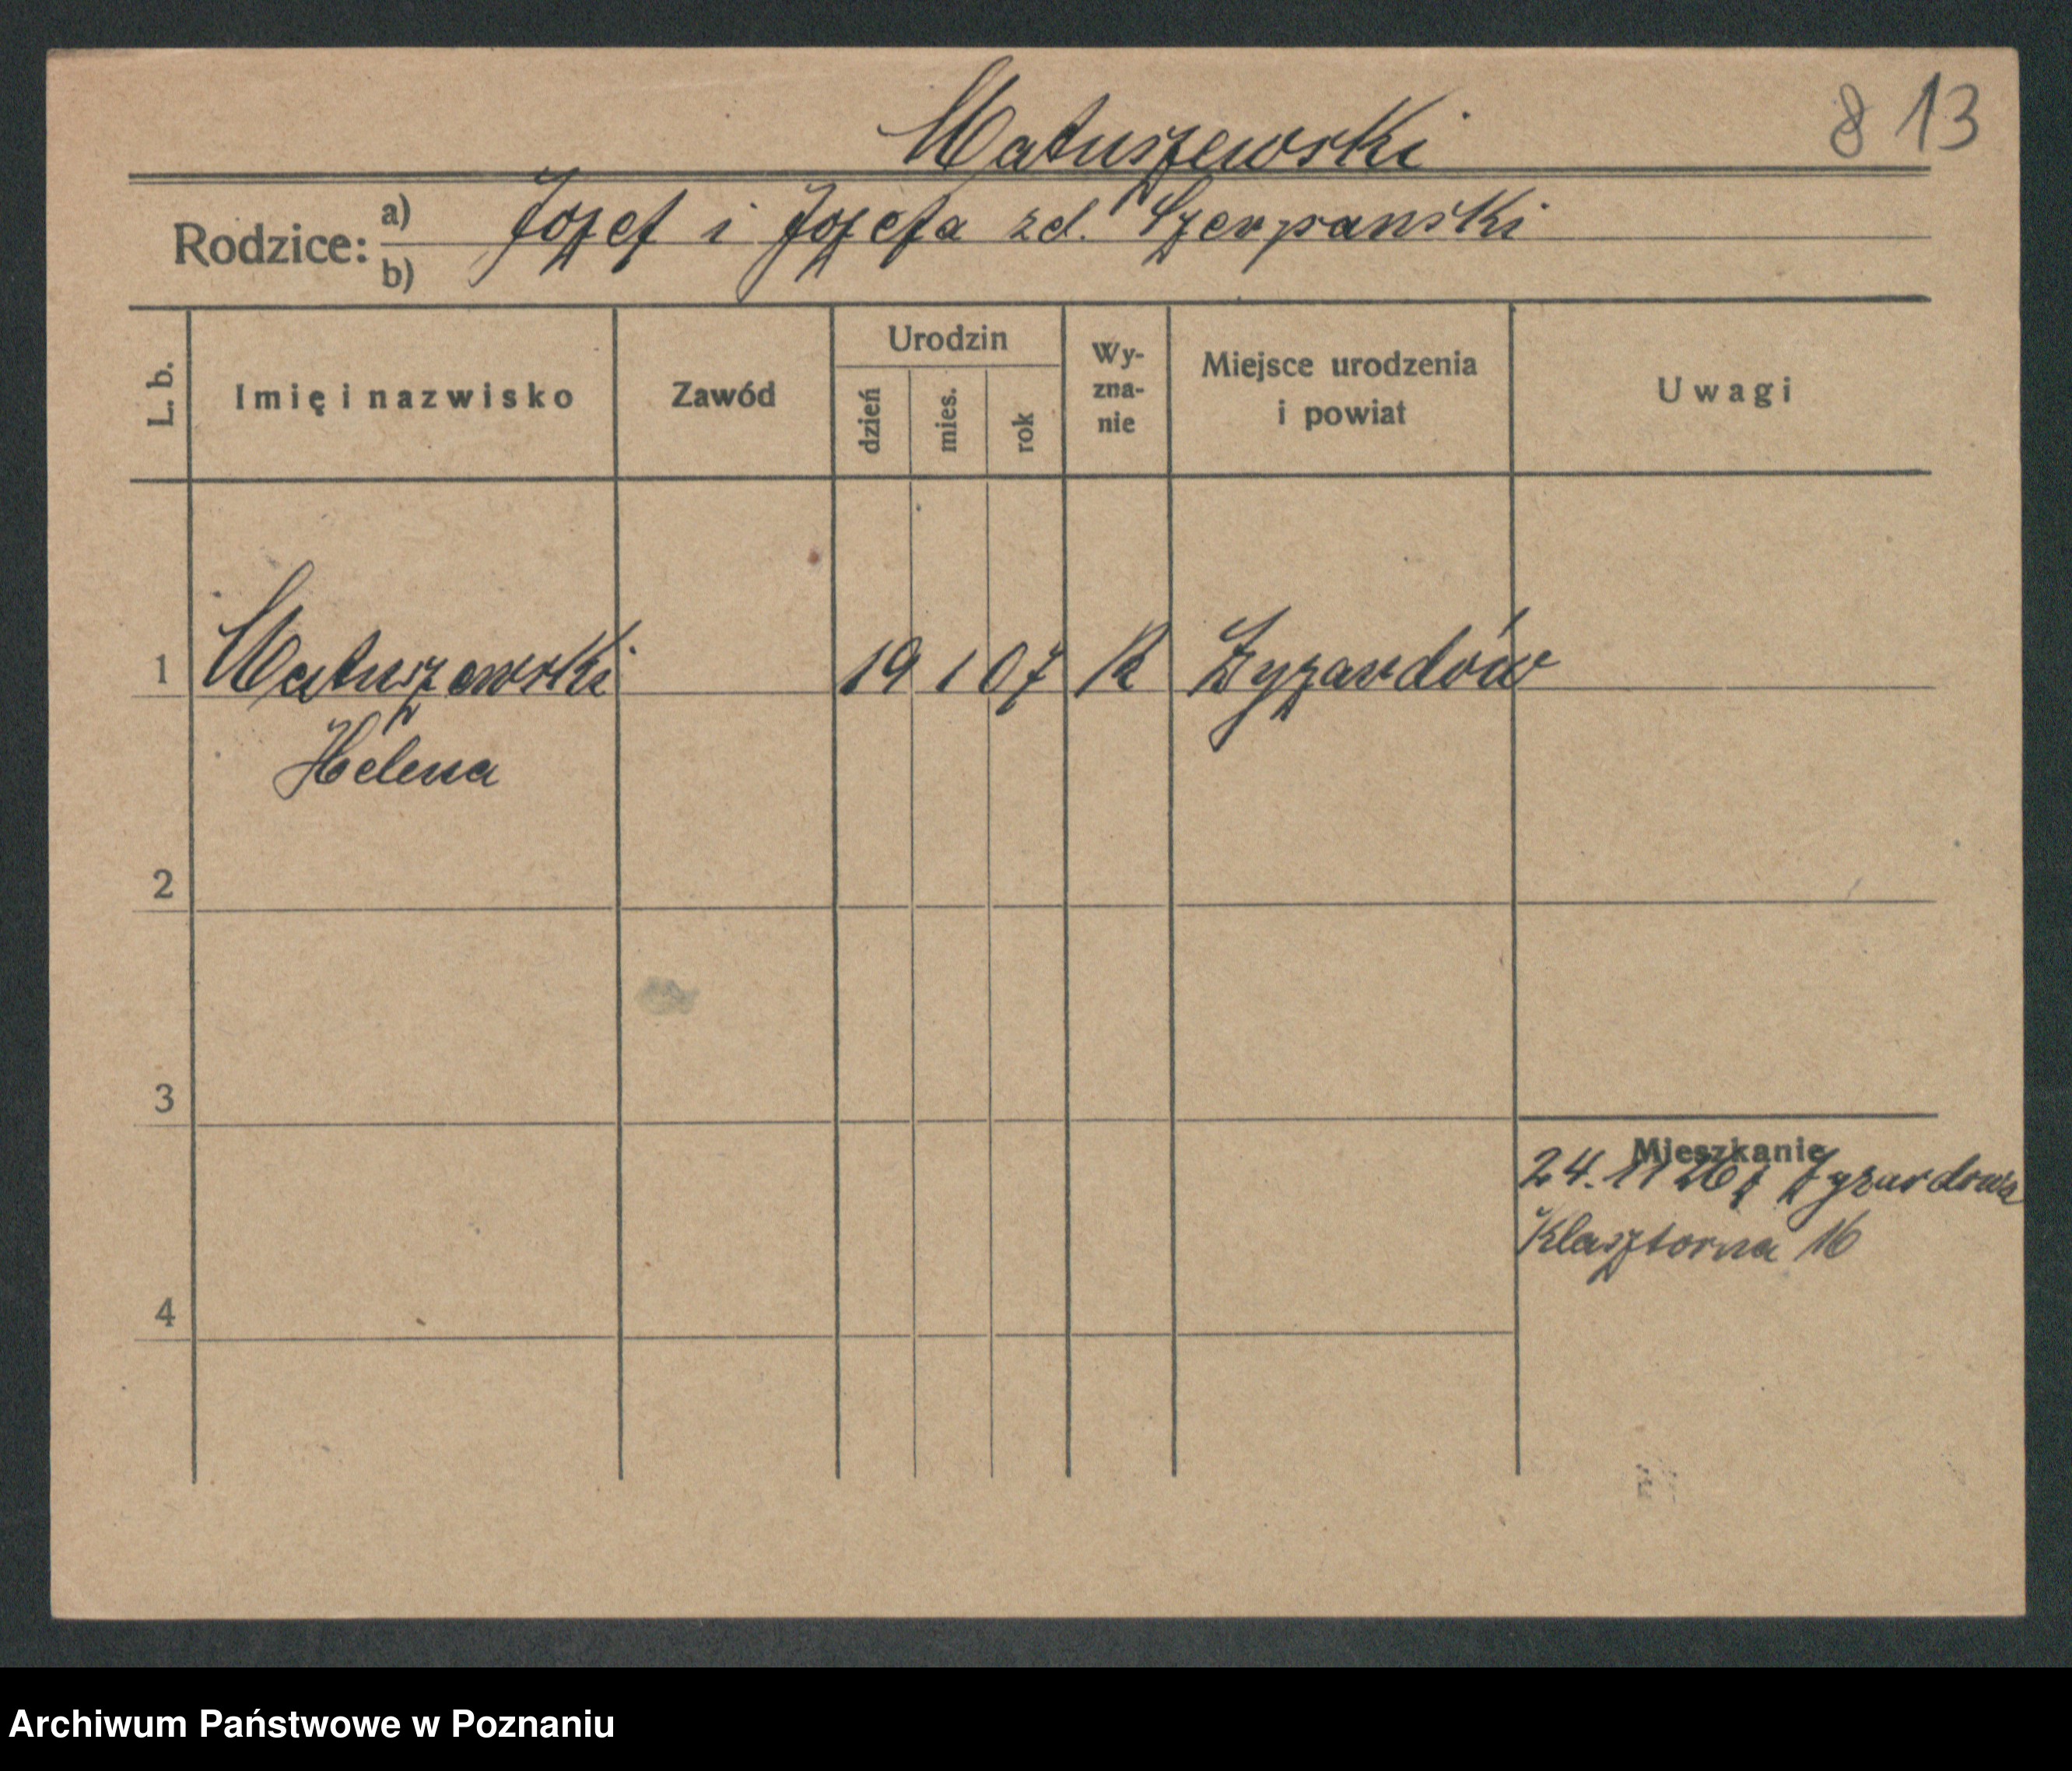 Matuszewski
8 13
Rodzice: a) Józef i Józefa zd. Szerpanski
b)
L. b.
Imię i nazwisko
Zawód
Urodzin
dzień
mies.
rok
Wy-
zna-
nie
Miejsce urodzenia
i powiat
Uwagi
1 Matuszewski 19 1 07 R Zyrardów
Helena
2
3
Mieszkanie
24. 11 26 z Zyrardowa
Klasztorna 16
4
Archiwum Państwowe w Poznaniu